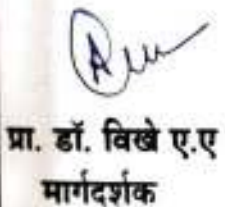 प्रा. डॉ. विखे ए.ए
मार्गदर्शक